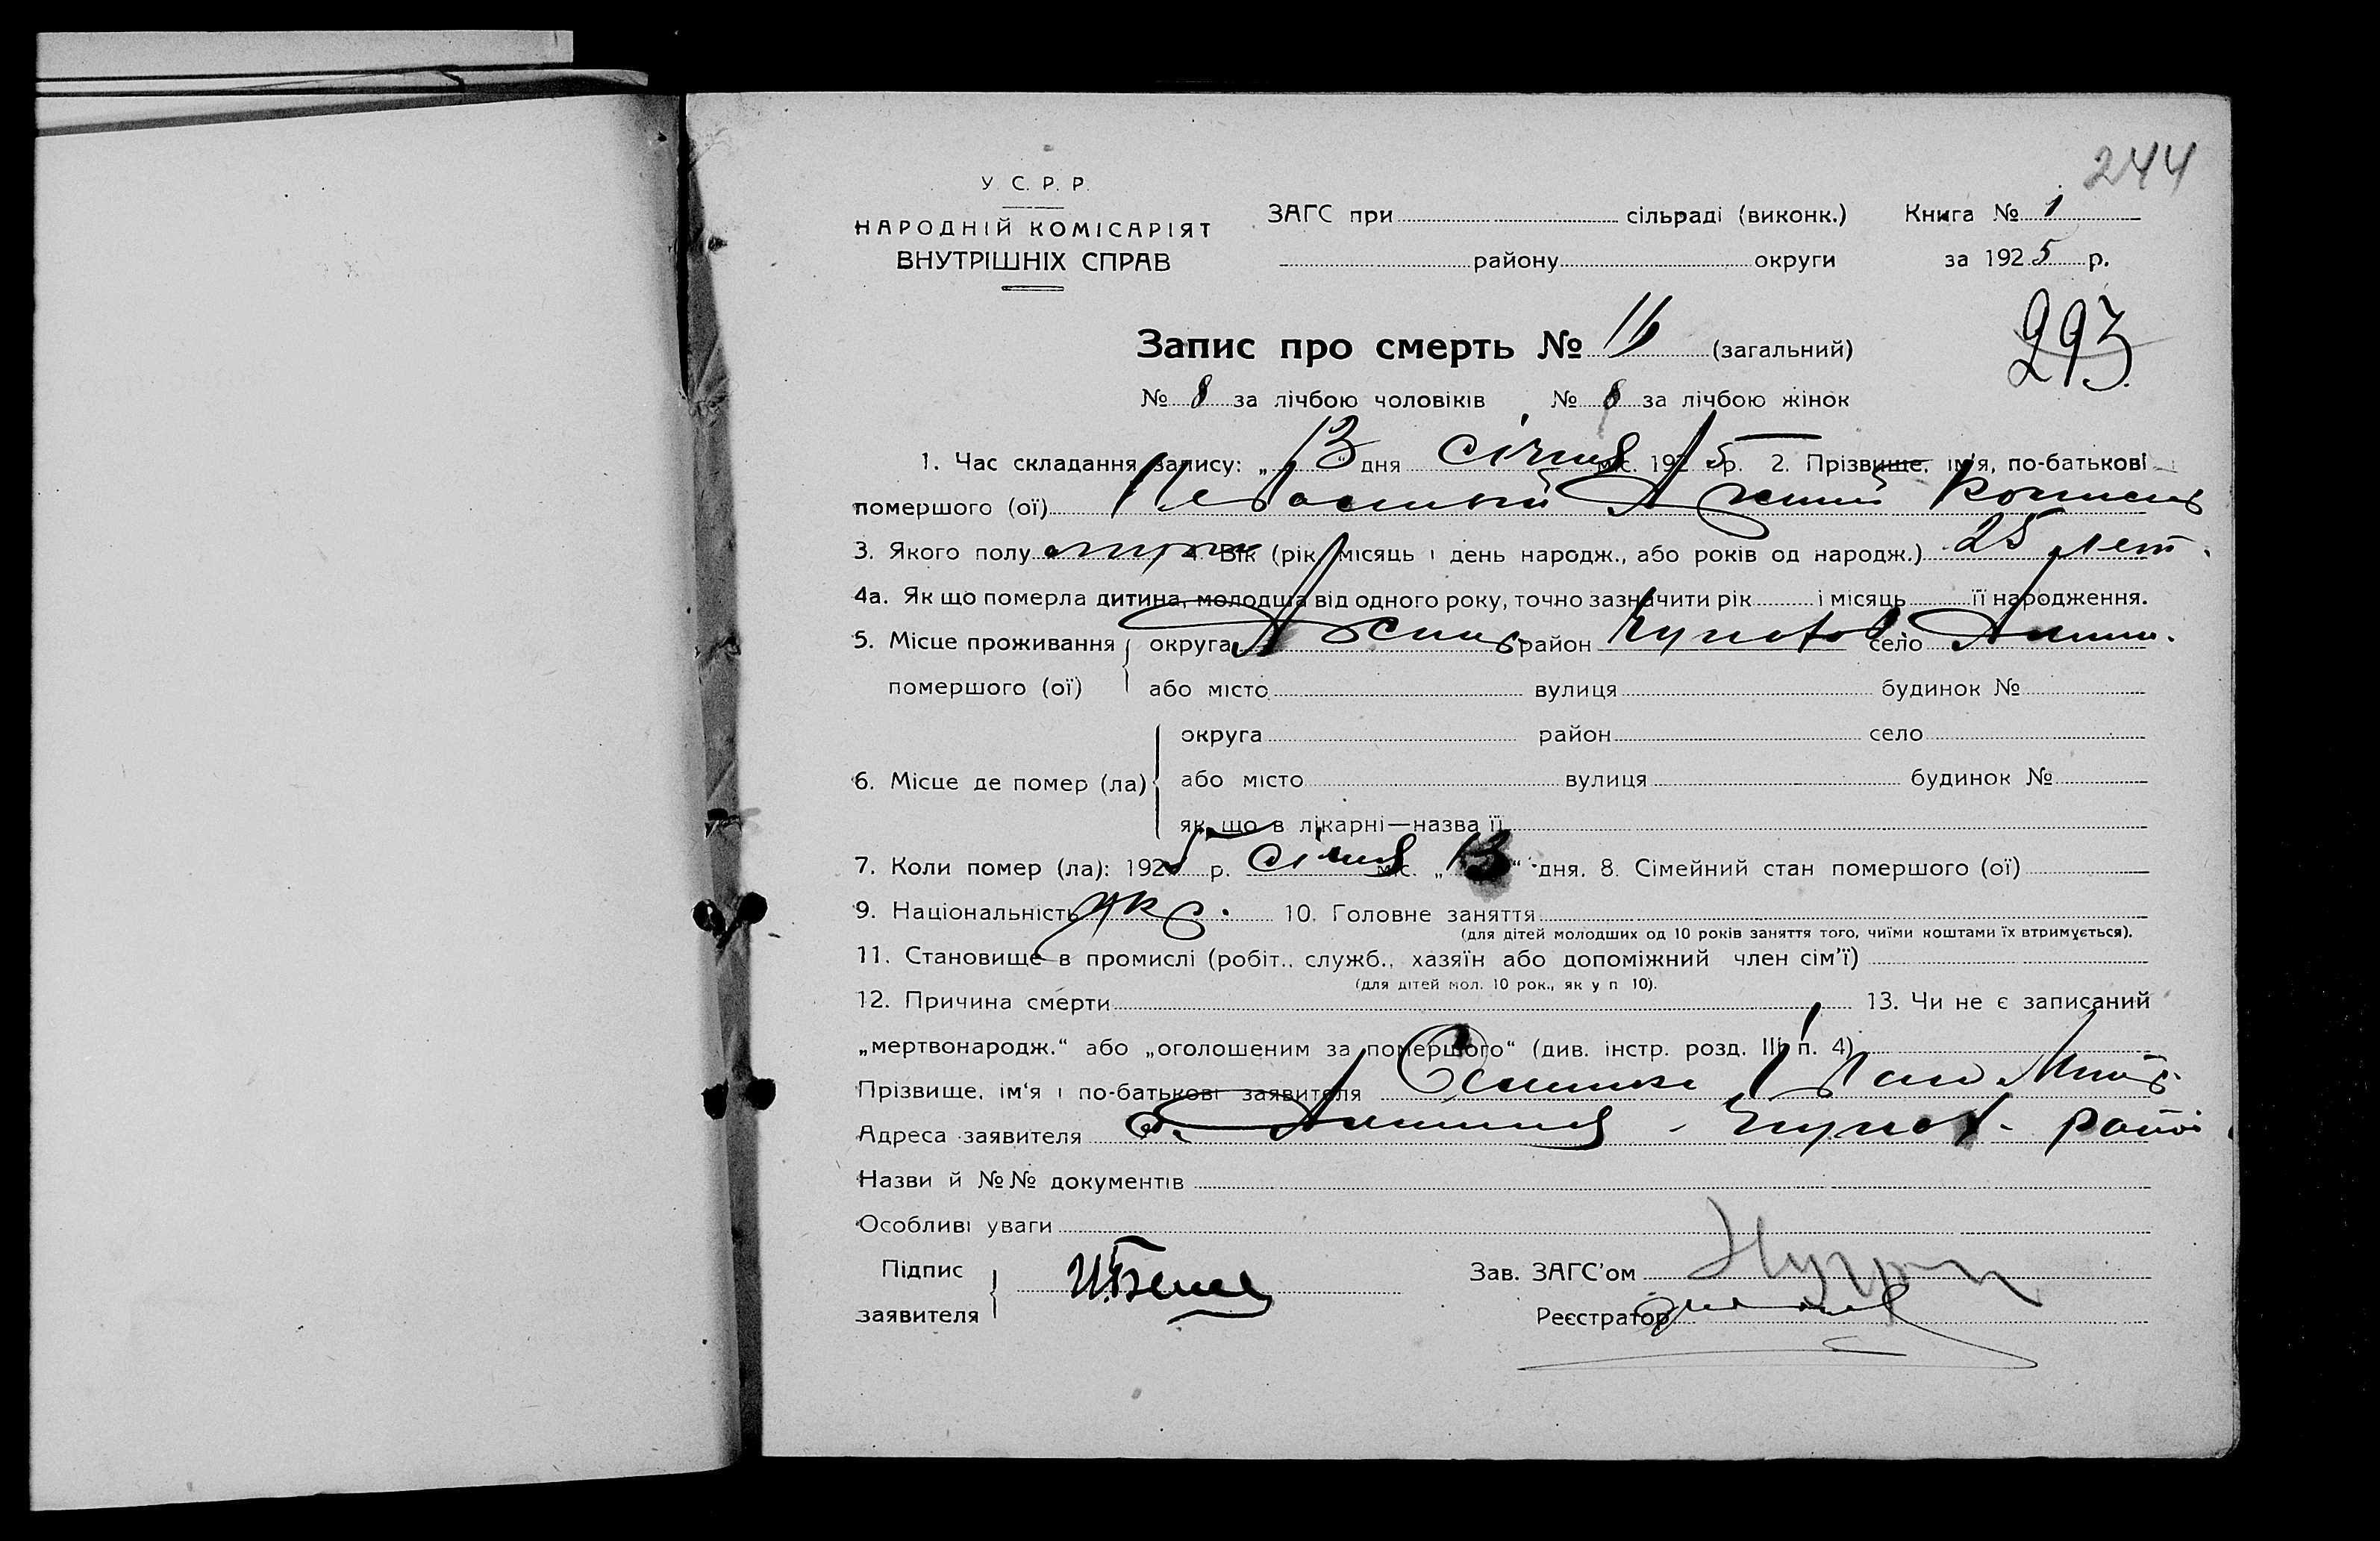 244
У С. Р. Р.
НАРОДНІЙ КОМІСАРІЯТ
ВНУТРІШНІХ СПРАВ
ЗАГС при сільраді (виконк.) Книга № 1
району округи за 1925 р.
293
Запис про смерть № 16 (загальний)
№ 8 за лічбою чоловіків № 8 за лічбою жінок
1. Час складання запису: „13“ дня січня міс. 1925 р. 2. Прізвище, ім'я, по-батькові
помершого (ої)
3. Якого полу муж 4. Вік (рік, місяць і день народж., або років од народж.) 25 лет.
4а. Як що померла дитина, молодша від одного року, точно зазначити рік і місяць її народження.
5. Місце проживання округа район село
помершого (ої) або місто вулиця будинок №
округа район село
6. Місце де помер (ла) або місто вулиця будинок №
як що в лікарні—назва її
7. Коли помер (ла): 1925 р. січня міс. „13“ дня. 8. Сімейний стан помершого (ої)
9. Національність укр. 10. Головне заняття
(для дітей молодших од 10 років заняття того, чиїми коштами їх втримується).
11. Становище в промислі (робіт., служб., хазяїн або допоміжний член сім'ї)
(для дітей мол. 10 рок., як у п 10).
12. Причина смерти 13. Чи не є записаний
„мертвонародж.“ або „оголошеним за помершого“ (див. інстр. розд. III п. 4)
Прізвище, ім'я і по-батькові заявителя
Адреса заявителя
Назви й №№ документів
Особливі уваги
Підпис
заявителя
Зав. ЗАГС'ом
Реєстратор